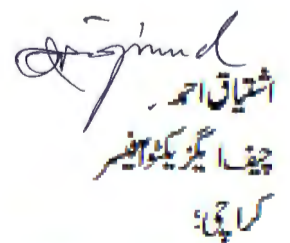 اشتیاق احمد
چیف ایگزیکٹو آفیسر
کراچی: